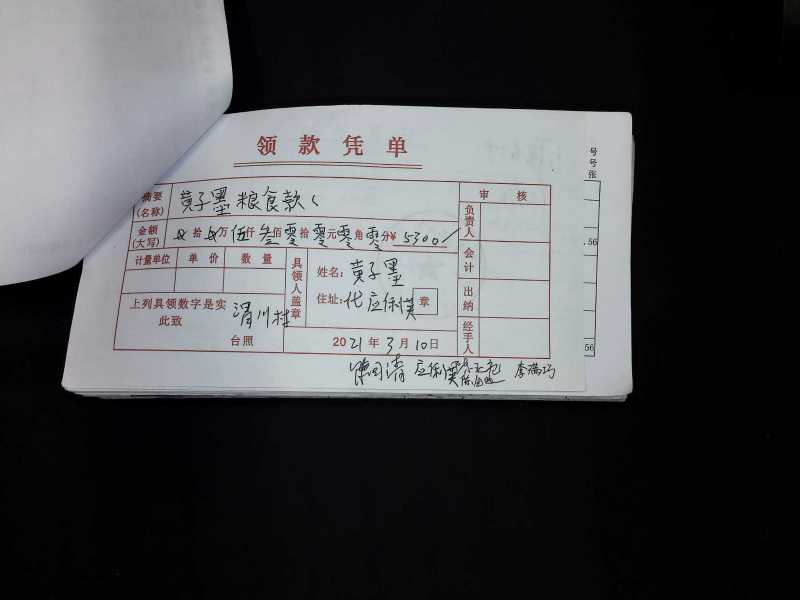 领款凭单
摘要(名称) 黄子墨粮食款
审核
金额(大写) 拾 万伍仟叁佰零拾零元零角零分¥5300/
负责人
计量单位 单价 数量
具领人盖章
姓名：黄子墨
会计
住址：代应保儀 章
出纳
上列具领数字是实
此致
渭川村
台照
2021年3月10日
经手人
应保儀 李满巧
号
号
张
.56
56